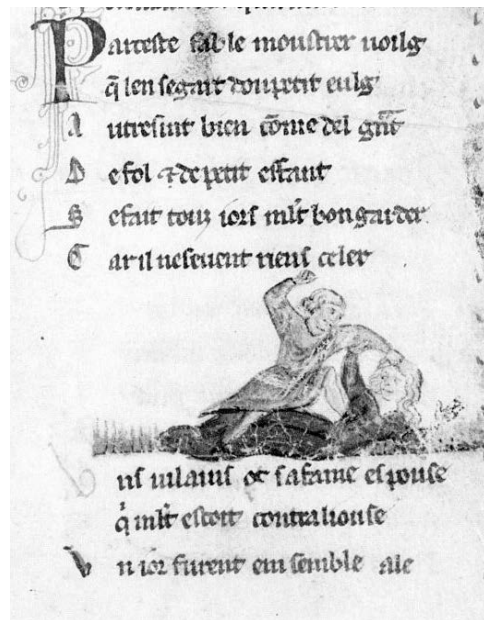 Par ceste fable moustrer uoilg
q̃ len se gart dou petit eulg
A utresint bien cõme del gr̃at
D e fol ⁊ de petit effant
S e fait touz iors ml̃t bon garder
C ar il ne seuent riens celer
uns uilains ot sa fame espouse
q̃ ml̃t estoit contraliouse
V n ior furent ensemble ale